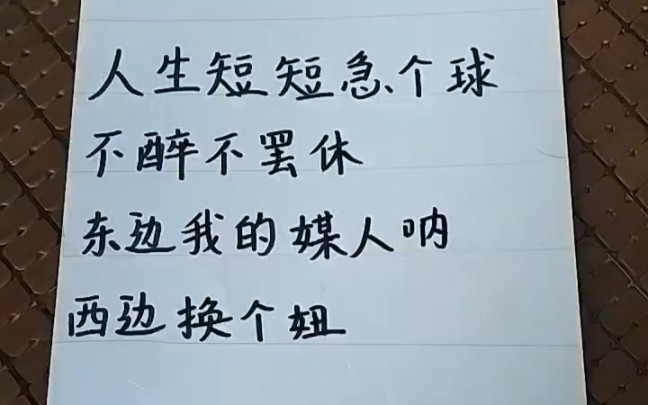 人生短短急个球
不醉不罢休
东边我的媒人呐
西边换个妞